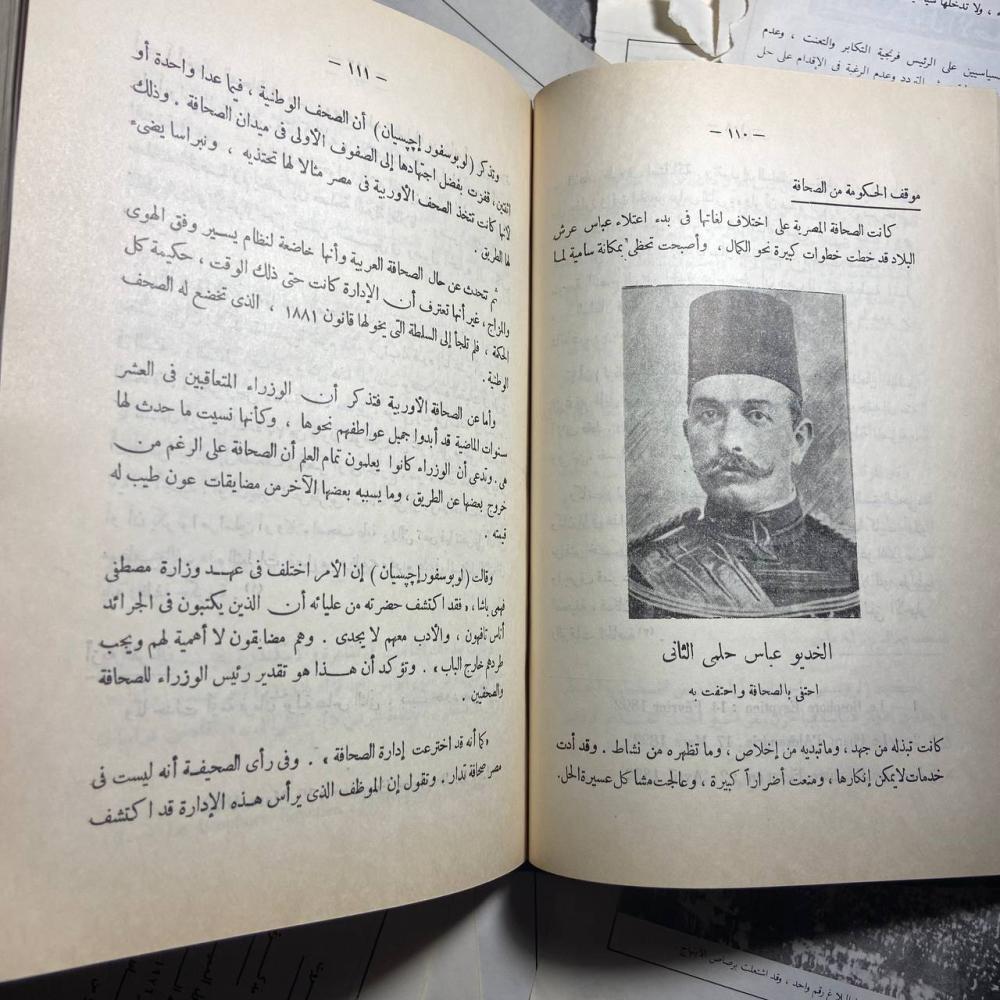 — ١١٠ —
موقف الحكومة من الصحافة
كانت الصحافة المصرية على اختلاف لغاتها فى بدء اعتلاء عباس عرش
البلاد قد خطت خطوات كبيرة نحو الكمال ، وأصبحت تحظى بمكانة سامية لما
الخديو عباس حلمى الثانى
احتفى بالصحافة واحتفت به
كانت تبذله من جهد، وماتبديه من إخلاص ، وما تظهره من نشاط . وقد أدت
خدمات لايمكن إنكارها، ومنعت أضراراً كبيرة ، وعالجت مشاكل عسيرة الحل.
— ١١١ —
وتذكر (لوبوسفور إچپسيان) أن الصحف الوطنية ، فيما عدا واحدة أو
اثنتين ، قفزت بفضل اجتهادها إلى الصفوف الأولى فى ميدان الصحافة . وذلك
لأنها كانت تتخذ الصحف الأوربية فى مصر مثالا لها تحتذيه ، ونبراسا يضىء
لها الطريق .
ثم تتحدث عن حال الصحافة العربية وأنها خاضعة لنظام يسير وفق الهوى
والمزاج ، غير أنها تعترف أن الإدارة كانت حتى ذلك الوقت ، حكيمة كل
الحكمة ، فلم تلجأ إلى السلطة التى يخولها قانون ١٨٨١ ، الذى تخضع له الصحف
الوطنية .
وأما عن الصحافة الأوربية فتذكر أن الوزراء المتعاقبين فى العشر
سنوات الماضية قد أبدوا جميل عواطفهم نحوها ، وكأنها نسيت ما حدث لها
هى . وتدعى أن الوزراء كانوا يعلمون تمام العلم أن الصحافة على الرغم من
خروج بعضها عن الطريق ، وما يسببه بعضها الآخر من مضايقات عون طيب له
قيمته .
وقالت (لوبوسفور إچپسيان) إن الأمر اختلف فى عهد وزارة مصطفى
فهمى باشا ، « فقد اكتشف حضرته من عليائه أن الذين يكتبون فى الجرائد
أناس تافهون ، والأدب معهم لا يجدى . وهم مضايقون لا أهمية لهم ويجب
طردهم خارج الباب » . وتؤكد أن هذا هو تقدير رئيس الوزراء للصحافة
والصحفيين .
« كما أنه قد اخترعت إدارة الصحافة » . وفى رأى الصحيفة أنه ليست فى
مصر صحافة تدار . وتقول إن الموظف الذى يرأس هذه الإدارة قد اكتشف
سياسيين على الرئيس فرنجية التكابر والتعنت ، وعدم
التردد وعدم الرغبة فى الإقدام على حل
رقم واحد ، وقد اشتعلت برصاص الابتهاج